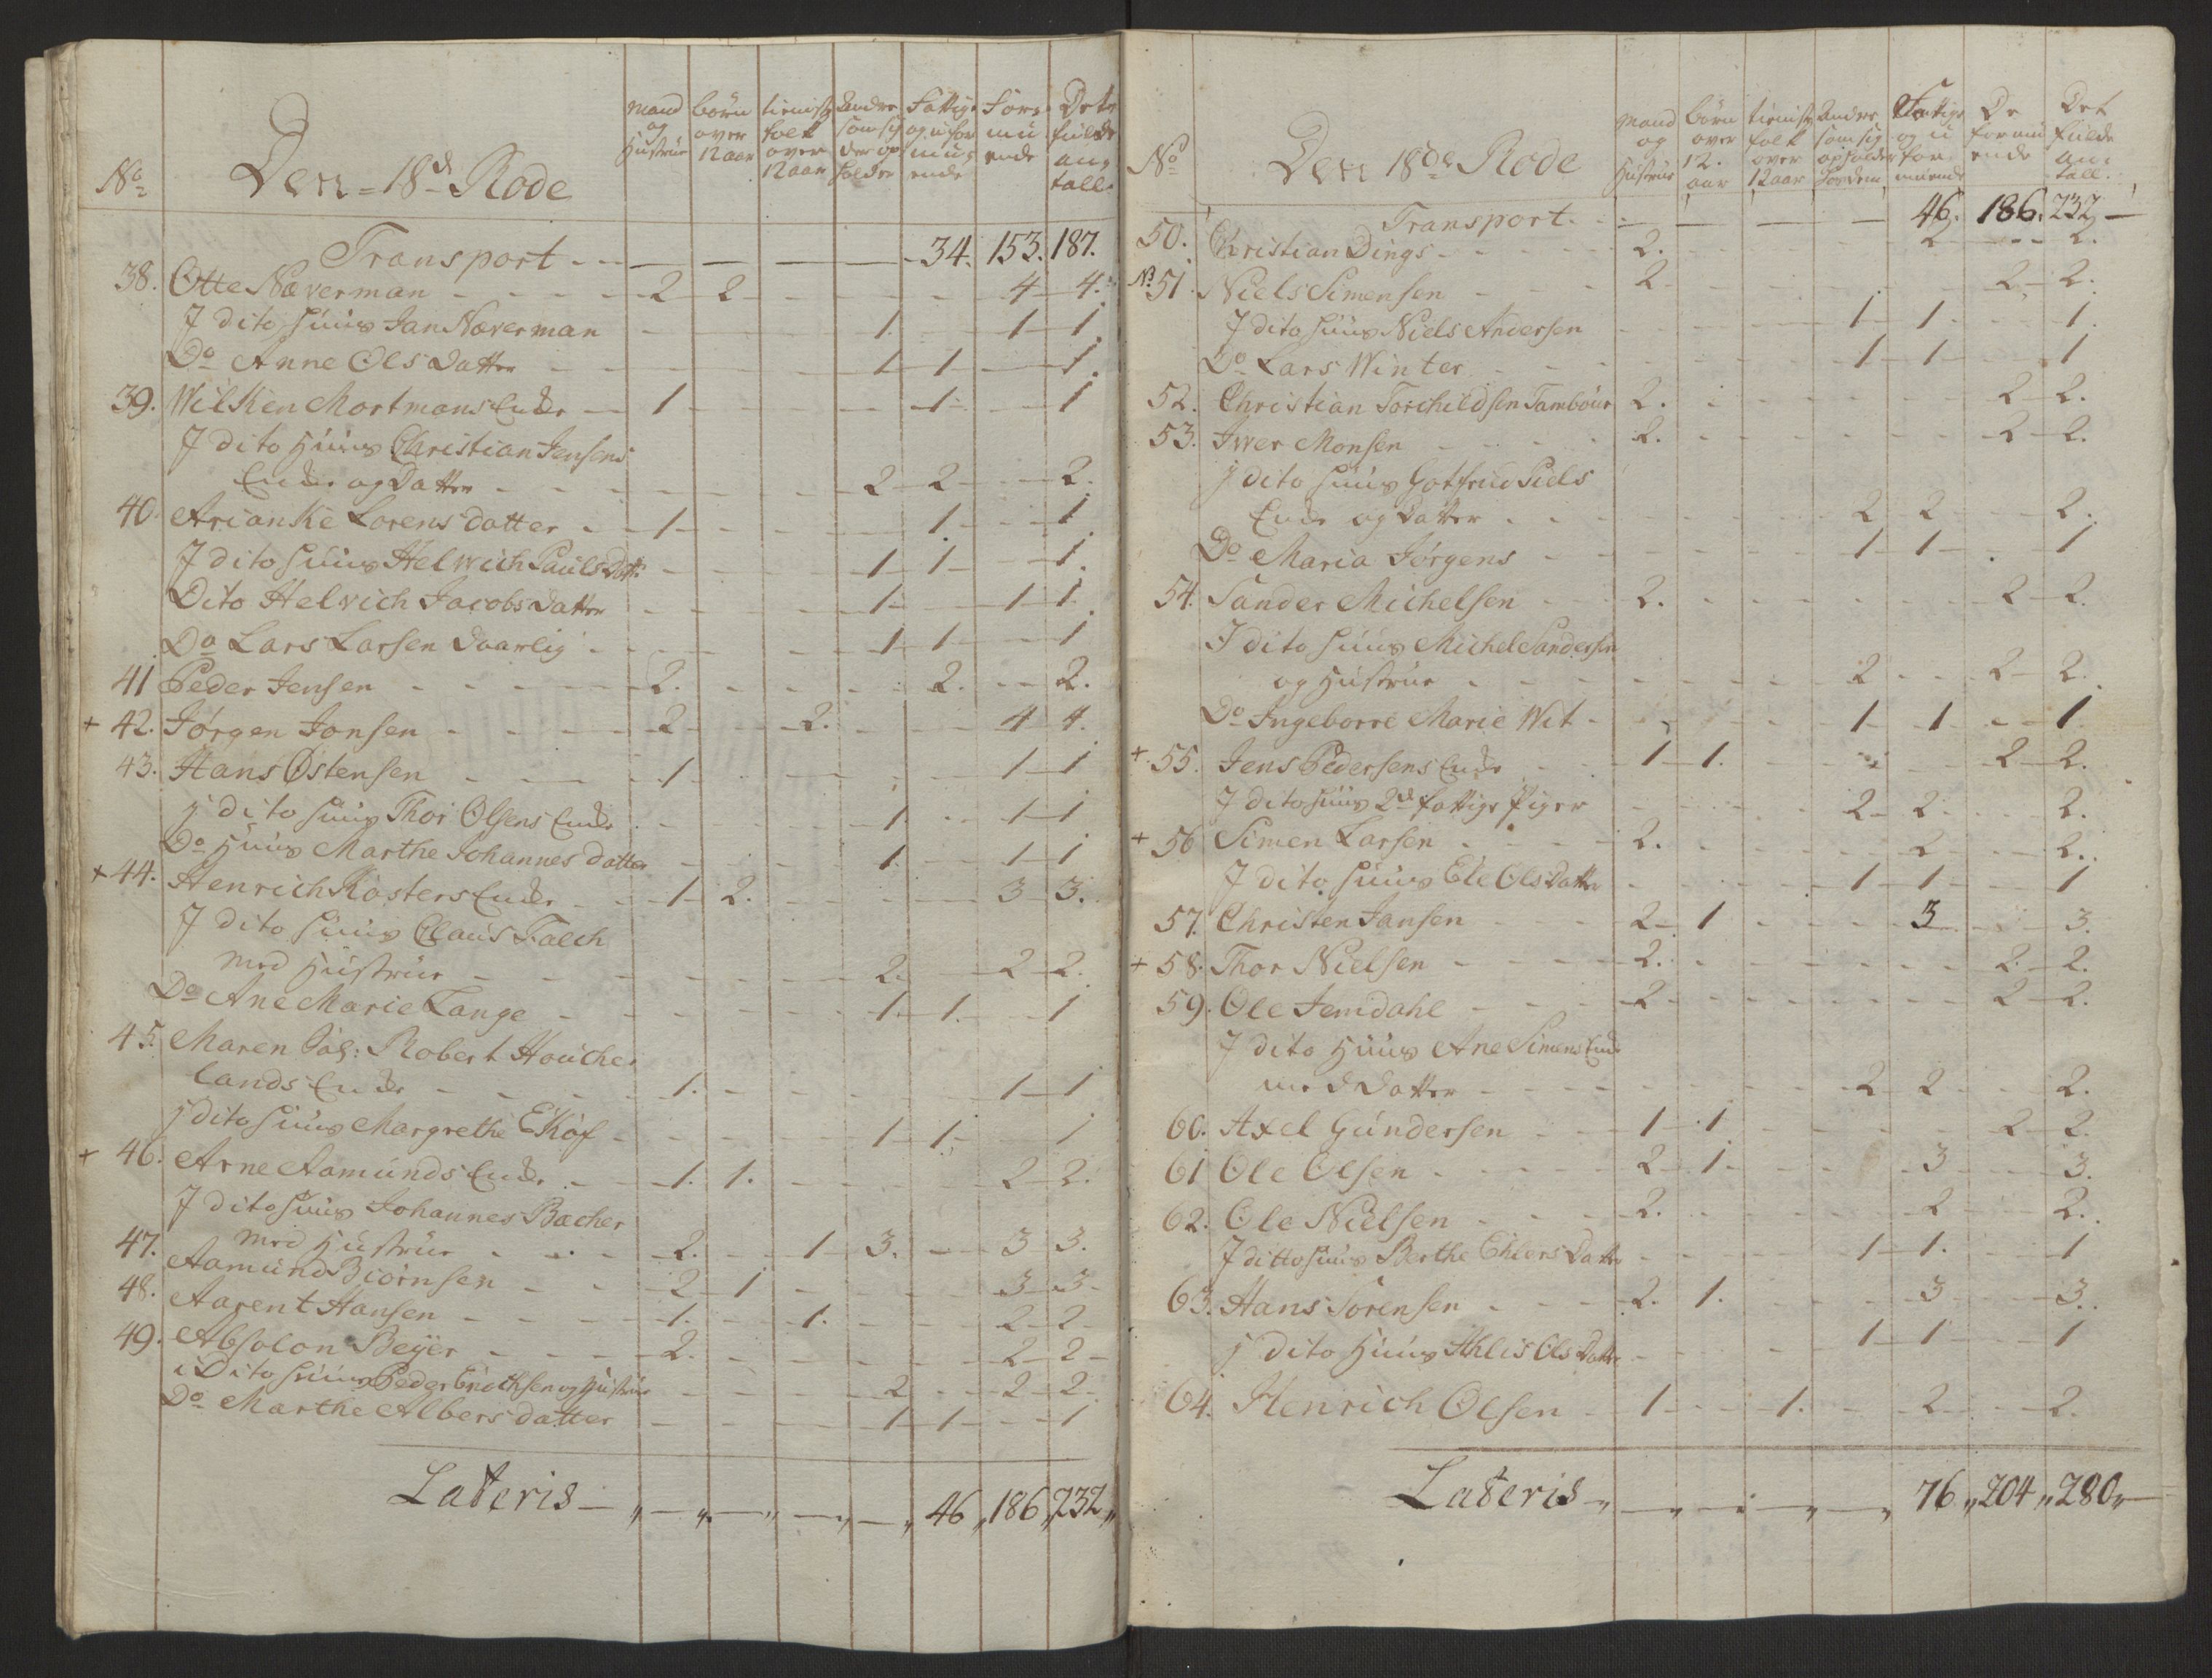 No Den 18d Rode
mand og Hustrue
børn over 12 aar
tieniste folk over 12 aar
Andre som sig der op holder
Fattige og ufor mu ende
For mu ende
Dets fulde an tall
Transport - - 34. 153. 187.
38. Otte Næverman - 2 2 - 4 4.
J dito Huus Jan Næverman - 1. 1 1.
Do Anne Ols Datter - 1 1 - 1.
39. Wilken Mortmans Enke - 1 - 1 - 1
J dito Huus Christian Jensens
Enke og Datter - 2 2 - 2.
40. Arianke Lorens datter - 1 - 1. - 1
J dito Huus Helwich Pauls Datt: - 1 1 - 1.
Dito Helvich Jacobs Datter - 1 - 1 1.
Do Lars Larsen Daarlig - 1 1 - 1
41 Peder Jensen - 2. - 2. - 2.
+ 42. Jørgen Jonsen - 2 - 2. - 4 4.
43. Hans Østensen - 1 - 1 1
j dito Huus Thor Olsens Enke - 1 - 1 1
Do Huus Marthe Johannes datter - 1. - 1 1
+ 44. Henrich Kosters Enke - 1 2. - 3 3.
J dito Huus Claus Falch
med Hustrue - 2. - 2 2.
Do Ane Marie Lange - 1. 1. - 1
45. Maren Sal: Robert Houche
lands Enke - 1. - 1 1
j dito Huus Margrethe Ekof - 1 1. - 1
+ 46. Arne Aamunds Enke - 1. 1. - 2 2.
J dito Huus Johannes Bacher
med Hustrue - 2. - 1 3. - 3 3.
47. Aamund Biørnsen - 2 1 - 3 3
48. Aagent Hansen - 1. - 1. - 2 2
49. Absolon Beÿer - 2. - 2 2
i Dito Huus Peder Erichsen og Hustrue - 2 - 2 2
Do Marthe Albers datter - 1 1 - 1
Lateris - 46 „ 186 „ 232 „
No Den 18de Rode
mand og Hustrue
børn over 12. aar
tieniste folk over 12 aar
Andre som sig opholder hos dem
Fattige og u for muende
De formu ende
Det fulde an: tall.
Transport. - 46. 186. 232 -
50. Christian Dings - 2. - 2 - 2.
No 51. Niels Simensen - 2 - 2 2.
J dito Huus Niels Andersen - 1 1 - 1.
Do Lars Winter - 1 1 - 1
52. Christian Torchildsen Tambour 2. - 2 2.
53. Iver Monsen - 2. - 2 2.
j dito Huus Gotfried Piels
Enke og Datter - 2 2 - 2.
Do Maria Jørgens - 1 1 - 1
54. Sander Michelsen - 2. - 2 2.
J dito Huus Michel Sandersen
og Hustrue - 2 - 2 2.
Do Ingeborre Marie Wit - 1 1 - 1.
+ 55. Jens Pedersens Enke - 1 1. - 2 2.
J dito Huus 2de fattige Piger - 2 2 - 2.
+ 56 Simen Larsen - 2. - 2 - 2.
J dito Huus Ele Ols Datter - 1 1 - 1
57. Christen Jansen - 2 1 - 3 - 3.
+ 58. Thor Nielsen - 2. - 2. 2.
59. Ole Jemdahl - 2 - 2 2.
J dito Huus Ane Simens Enke
med Datter - 2 2 - 2.
60. Axel Gundersen - 1 1 - 2 2.
61 Ole Olsen - 2 1 - 3 - 3.
62. Ole Nielsen - 2. - 2 - 2.
J ditto Huus Berthe Ehlers Datter - 1 1. - 1
63. Hans Sørensen - 2. 1. - 3 - 3.
j dito Huus Ahlis Ols Datter - 1 1 - 1
64. Henrich Olsen - 1 - 1. - 2 - 2.
Lateris - 76 „ 204 „ 280 „ -